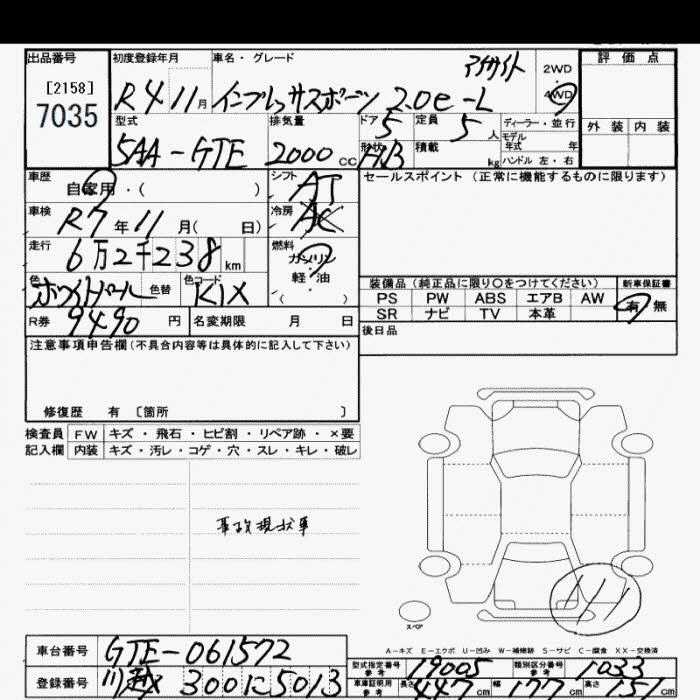 出品番号 初度登録年月 車名・グレード 評価点
[2158]
7035
R4 11月 インプレッサスポーツ 2.0e-L アイサイト 2WD 4WD
型式 排気量 ドア 定員 ディーラー・並行 外装 内装
5AA-GTE 2000CC 5 5人 モデル年式 年
形状 H/B 積載 kg ハンドル 左・右
車歴 自家用・( ) シフト AT セールスポイント (正常に機能するものに限ります)
車検 R7年11月( 日) 冷房 AC
走行 6万2千238km 燃料 ガソリン 軽・油 ( )
色 ホワイトパール 色替 色コード K1X
装備品(純正品に限り〇をつけてください) 新車保証書
PS PW ABS エアB AW 有 無
SR ナビ TV 本革
R券 9490円 名変期限 月 日
後日品
注意事項申告欄(不具合内容等は具体的に記入して下さい)
修復歴 有 〔箇所 〕
検査員 FW キズ・飛石・ヒビ割・リペア跡・×要
記入欄 内装 キズ・汚レ・コゲ・穴・スレ・キレ・破レ
事故現状車
スペア
A-キズ E-エクボ U-凹み W-補修跡 S-サビ C-腐食 XX-交換済
車台番号 GTE-061572
登録番号 川越 300に5013
型式指定番号 参考 19005 類別区分番号 参考 1033
車庫証明用 参考 長さ 447cm 幅 177cm 高さ 151cm